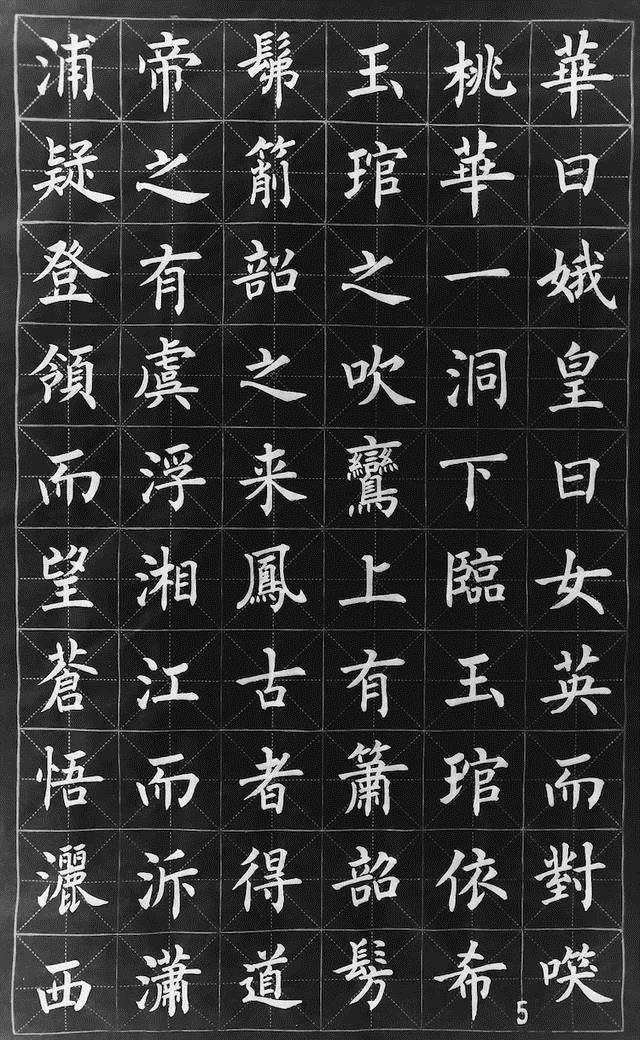 華曰娥皇曰女英而對㗛
桃華一洞下臨玉琯依希
玉琯之吹鸞上有簫韶髣
髴箾韶之来鳳古者得道
帝之有虞浮湘江而泝瀟
浦疑登領而望蒼悟灑西
5